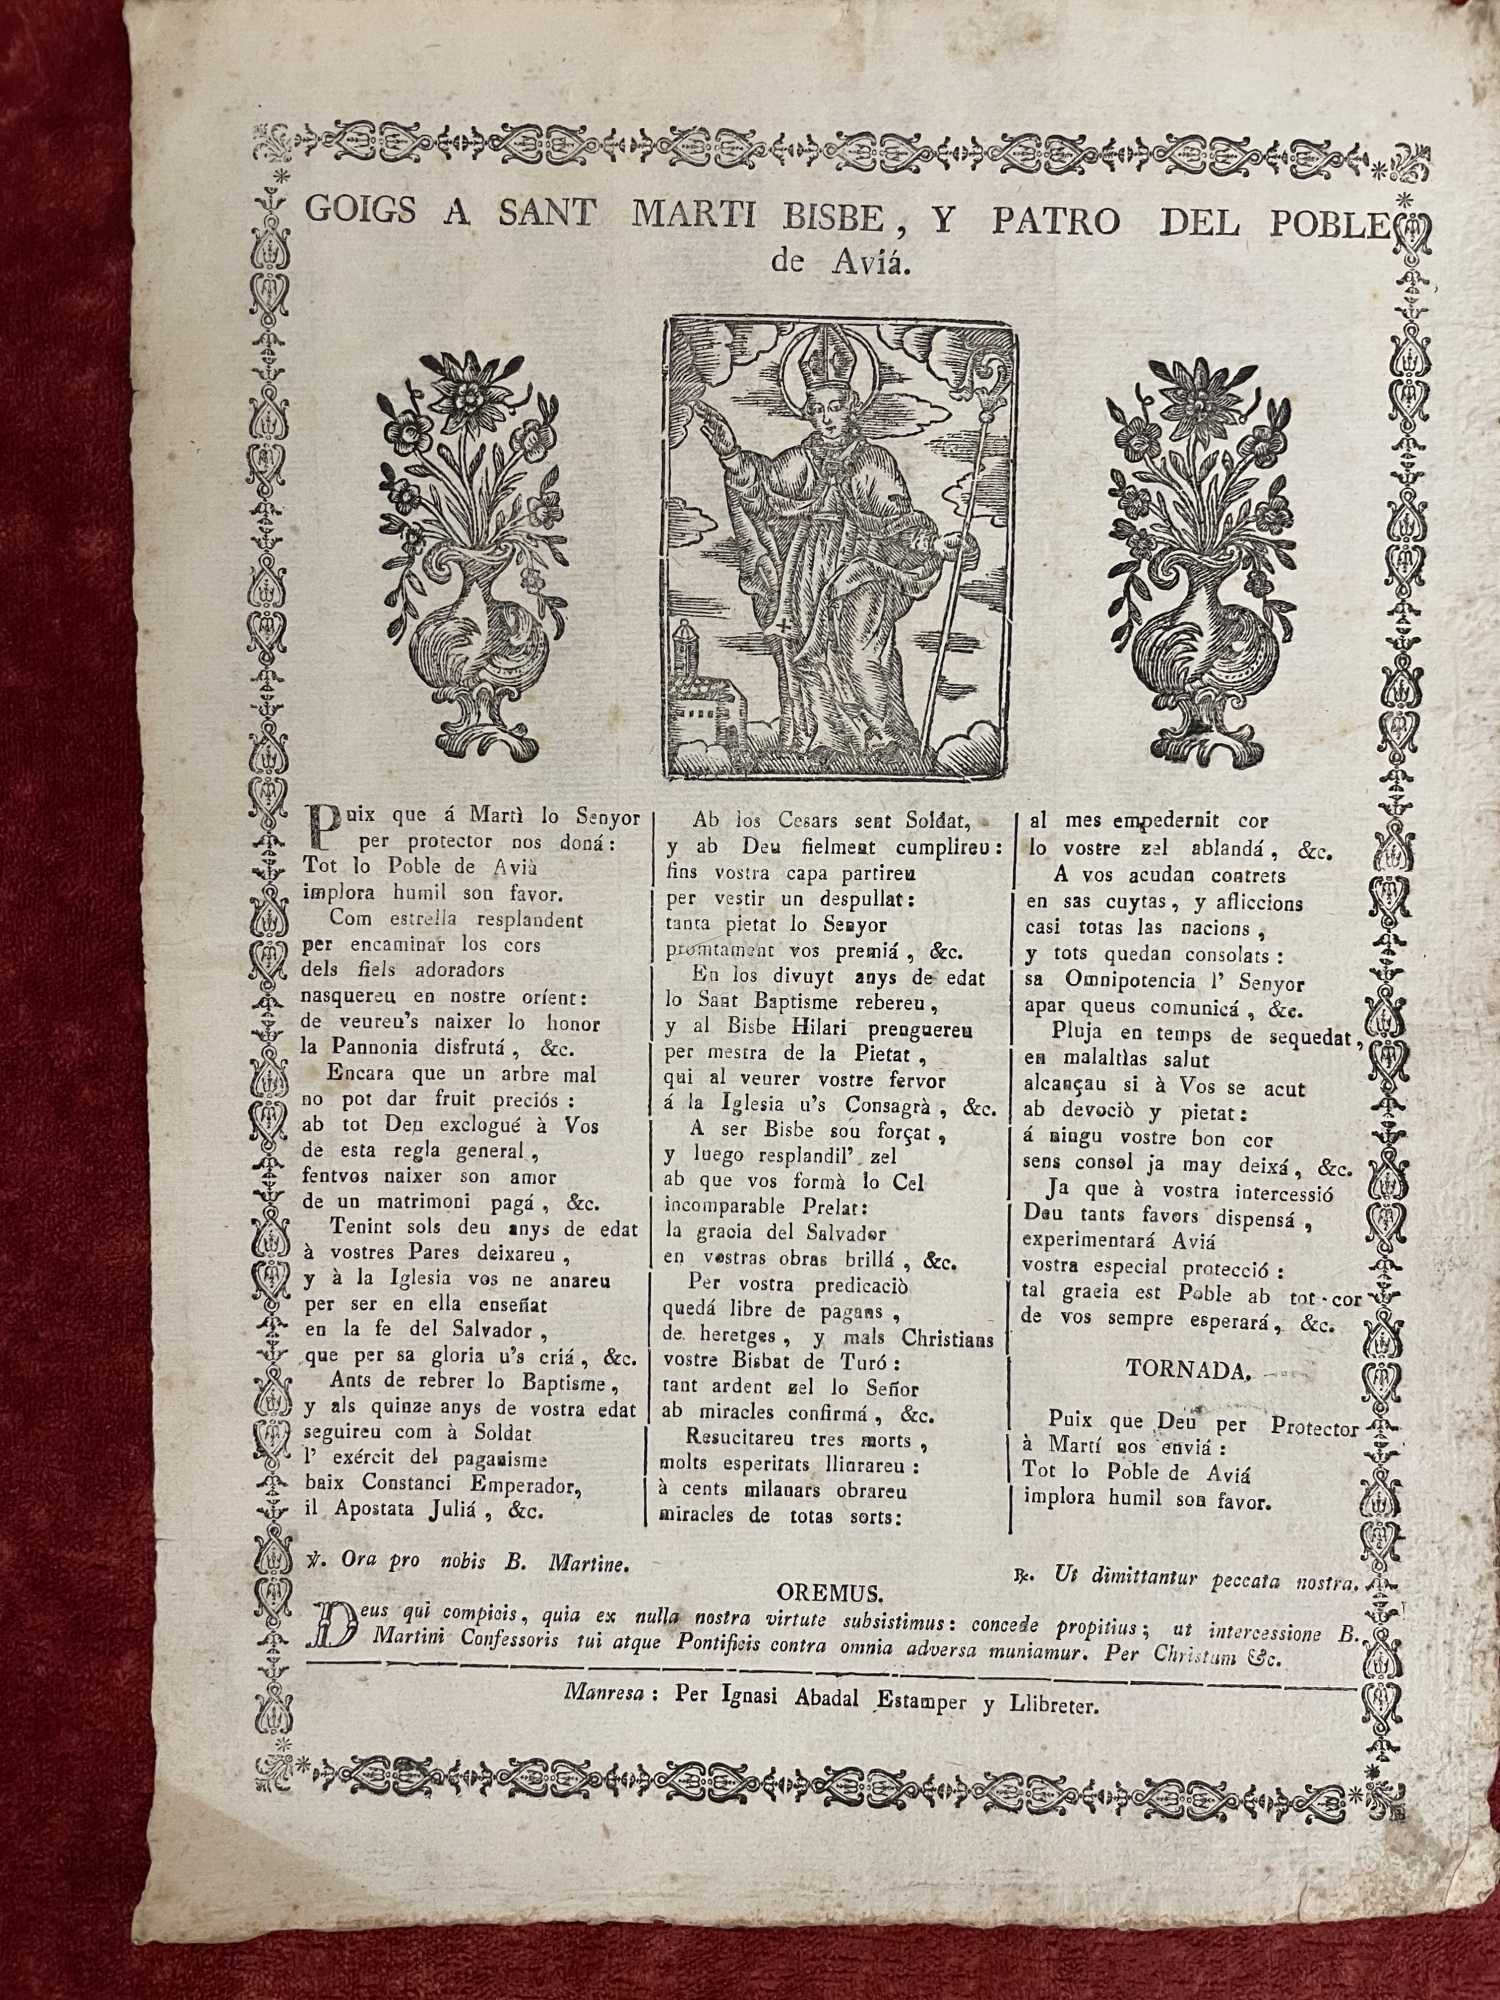 GOIGS A SANT MARTI BISBE, Y PATRO DEL POBLE
de Aviá.
Puix que á Martì lo Senyor
per protector nos doná:
Tot lo Poble de Avià
implora humil son favor.
Com estrella resplandent
per encaminar los cors
dels fiels adoradors
nasquereu en nostre orient:
de veureu's naixer lo honor
la Pannonia disfrutá, &c.
Encara que un arbre mal
no pot dar fruit preciós:
ab tot Deu exclogué à Vos
de esta regla general,
fentvos naixer son amor
de un matrimoni pagá, &c.
Tenint sols deu anys de edat
à vostres Pares deixareu,
y à la Iglesia vos ne anareu
per ser en ella enseñat
en la fe del Salvador,
que per sa gloria u's criá, &c.
Ants de rebrer lo Baptisme,
y als quinze anys de vostra edat
seguireu com à Soldat
l' exércit del paganisme
baix Constanci Emperador,
il Apostata Juliá, &c.
Ab los Cesars sent Soldat,
y ab Deu fielment cumplireu:
fins vostra capa partireu
per vestir un despullat:
tanta pietat lo Senyor
promtament vos premiá, &c.
En los divuyt anys de edat
lo Sant Baptisme rebereu,
y al Bisbe Hilari prenguereu
per mestra de la Pietat,
qui al veurer vostre fervor
á la Iglesia u's Consagrà, &c.
A ser Bisbe sou forçat,
y luego resplandil' zel
ab que vos formà lo Cel
incomparable Prelat:
la gracia del Salvador
en vostras obras brillá, &c.
Per vostra predicaciò
quedá libre de pagans,
de heretges, y mals Christians
vostre Bisbat de Turó:
tant ardent zel lo Señor
ab miracles confirmá, &c.
Resucitareu tres morts,
molts esperitats lliurareu:
à cents milanars obrareu
miracles de totas sorts:
al mes empedernit cor
lo vostre zel ablandá, &c.
A vos acudan contrets
en sas cuytas, y afliccions
casi totas las nacions,
y tots quedan consolats:
sa Omnipotencia l' Senyor
apar queus comunicá, &c.
Pluja en temps de sequedat,
en malaltìas salut
alcançau si à Vos se acut
ab devociò y pietat:
á ningu vostre bon cor
sens consol ja may deixá, &c.
Ja que à vostra intercessió
Deu tants favors dispensá,
experimentará Aviá
vostra especial protecció:
tal gracia est Poble ab tot cor
de vos sempre esperará, &c.
TORNADA.
Puix que Deu per Protector
à Martí nos enviá:
Tot lo Poble de Aviá
implora humil son favor.
℣. Ora pro nobis B. Martine.
℞. Ut dimittantur peccata nostra.
OREMUS.
Deus qui compicis, quia ex nulla nostra virtute subsistimus: concede propitius; ut intercessione B.
Martini Confessoris tui atque Pontificis contra omnia adversa muniamur. Per Christum &c.
Manresa: Per Ignasi Abadal Estamper y Llibreter.